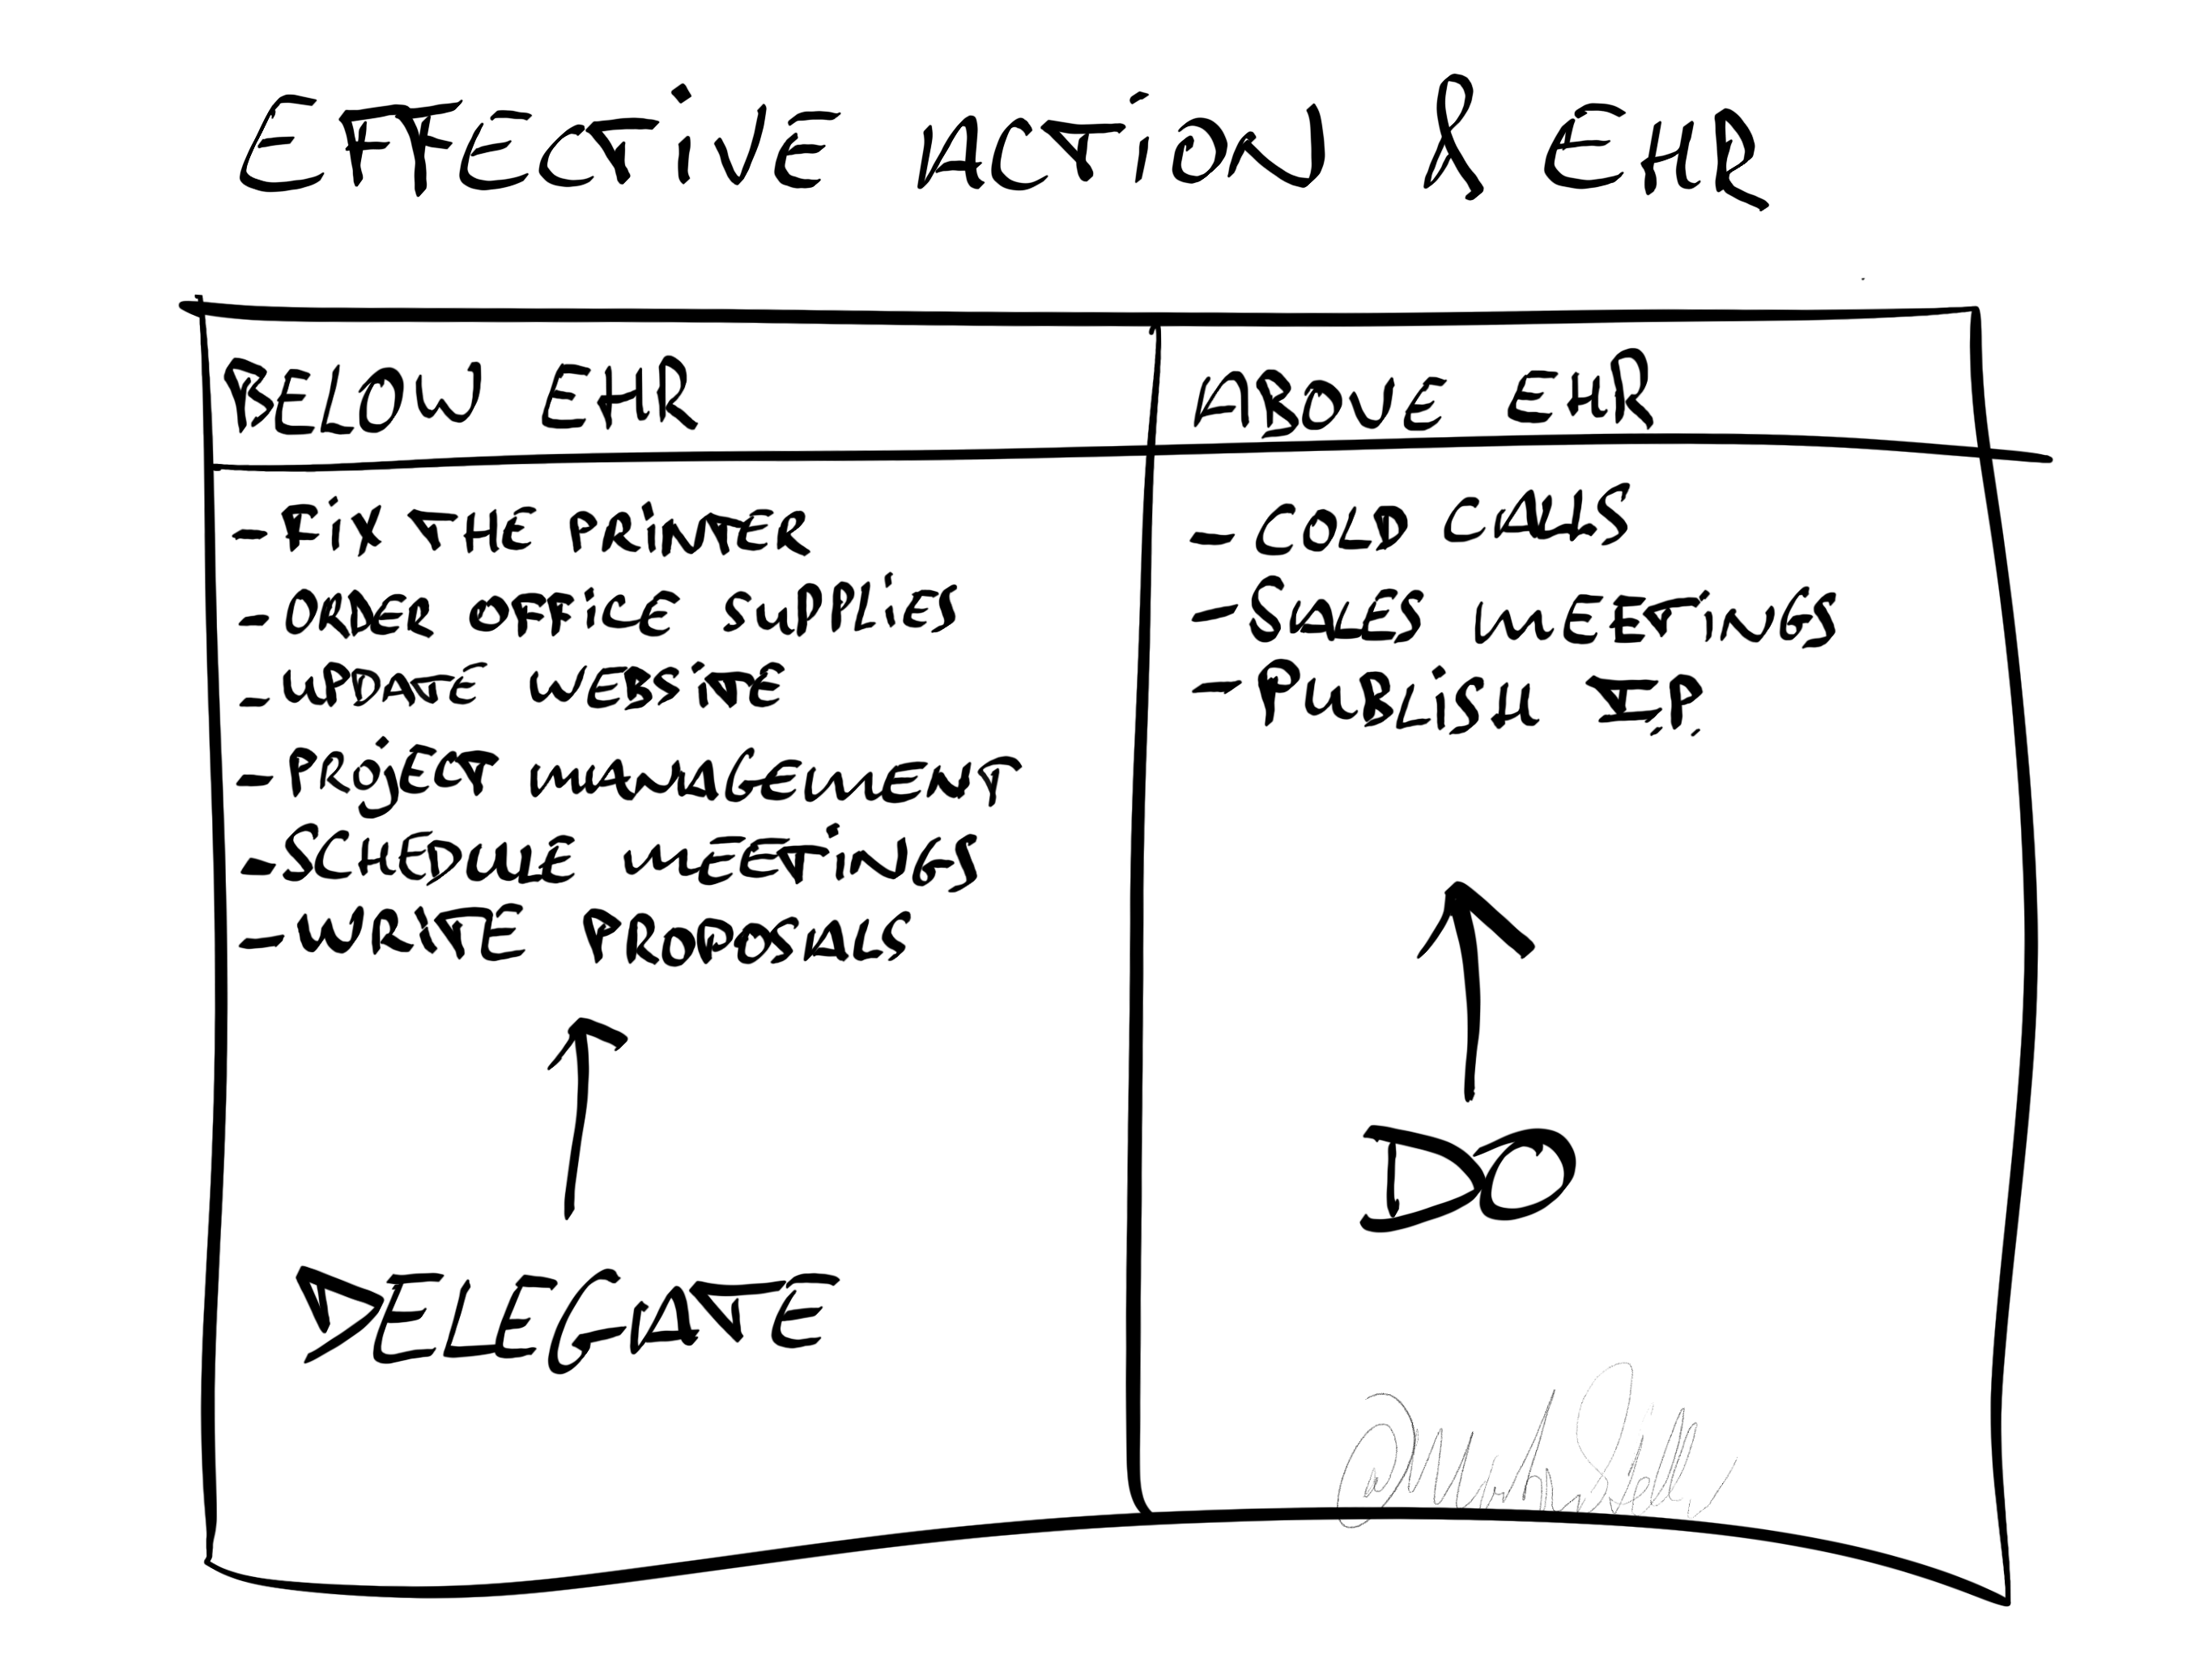 EFFECTIVE ACTION & EHR
BELOW EHR
- FIX THE PRINTER
- ORDER OFFICE SUPPLIES
- UPDATE WEBSITE
- PROJECT MANAGEMENT
- SCHEDULE MEETINGS
- WRITE PROPOSALS
DELEGATE
ABOVE EHR
- COLD CALLS
- SALES MEETINGS
- PUBLISH I.P.
DO